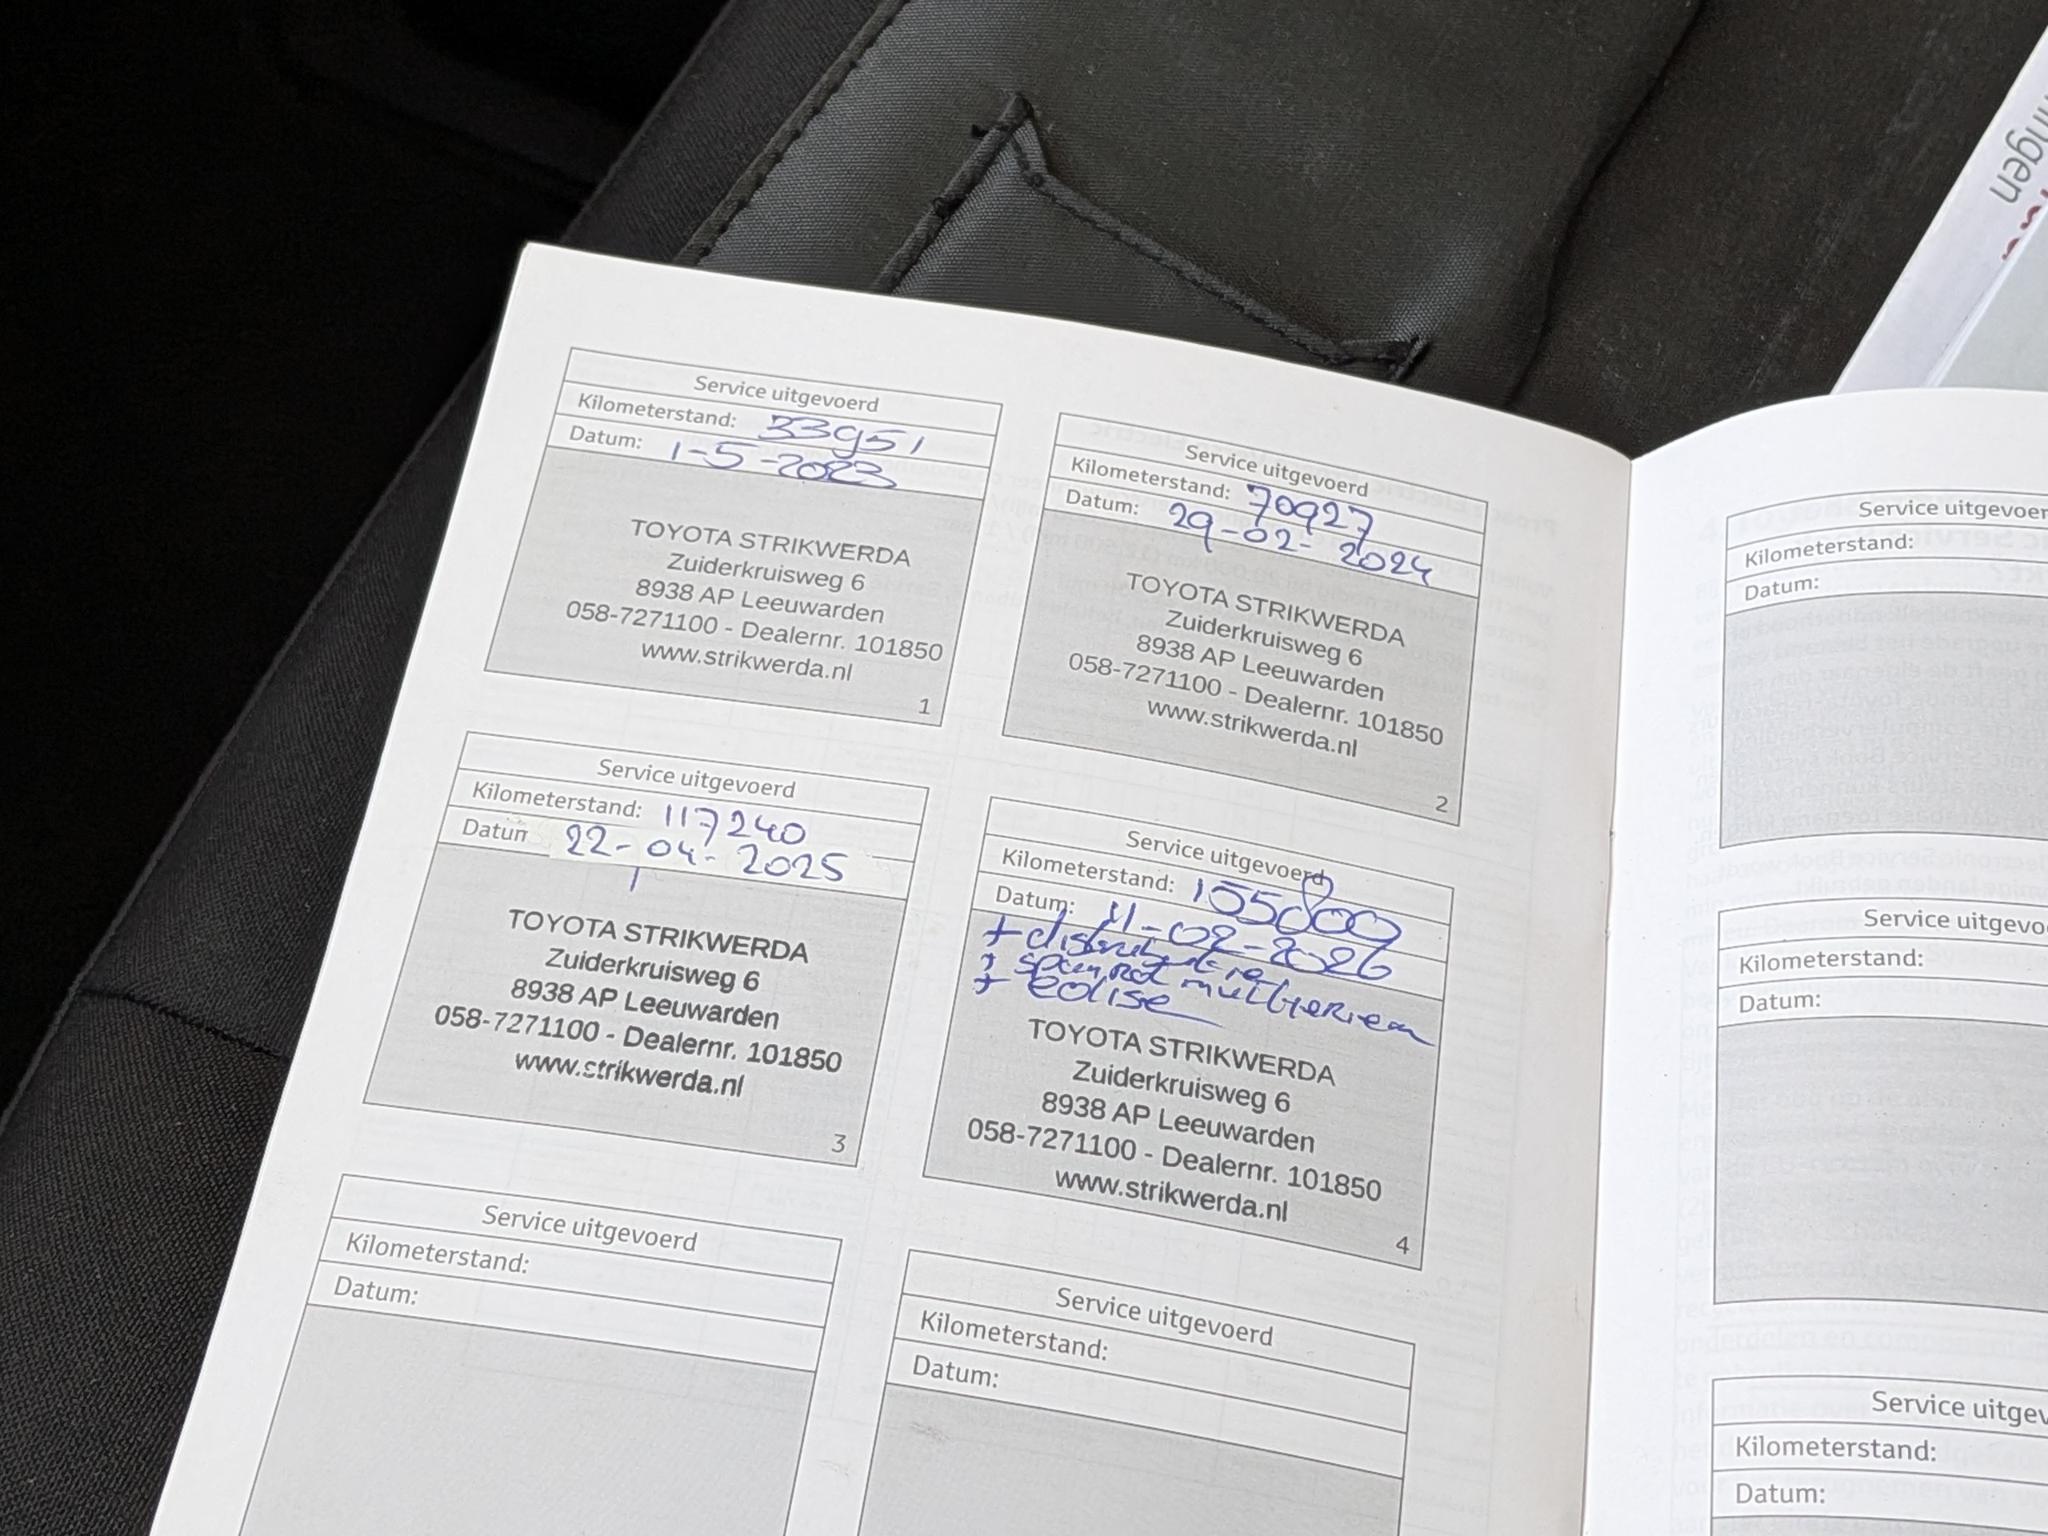 ingen
Service uitgevoerd
Kilometerstand: 33951
Datum: 1-5-2023
TOYOTA STRIKWERDA
Zuiderkruisweg 6
8938 AP Leeuwarden
058-7271100 - Dealernr. 101850
www.strikwerda.nl
1
Service uitgevoerd
Kilometerstand: 70927
Datum: 29-02-2024
TOYOTA STRIKWERDA
Zuiderkruisweg 6
8938 AP Leeuwarden
058-7271100 - Dealernr. 101850
www.strikwerda.nl
2
Service uitgevoerd
Kilometerstand: 117240
Datum 22-04-2025
TOYOTA STRIKWERDA
Zuiderkruisweg 6
8938 AP Leeuwarden
058-7271100 - Dealernr. 101850
www.strikwerda.nl
3
Service uitgevoerd
Kilometerstand: 155800
Datum: 11-02-2026
+ distributie
+ spanrol multiriem
+
TOYOTA STRIKWERDA
Zuiderkruisweg 6
8938 AP Leeuwarden
058-7271100 - Dealernr. 101850
www.strikwerda.nl
4
Service uitgevoerd
Kilometerstand:
Datum:
Service uitgevoerd
Kilometerstand:
Datum:
Service uitgevoer
Kilometerstand:
Datum:
Service uitgevo
Kilometerstand:
Datum:
Service uitgev
Kilometerstand:
Datum: